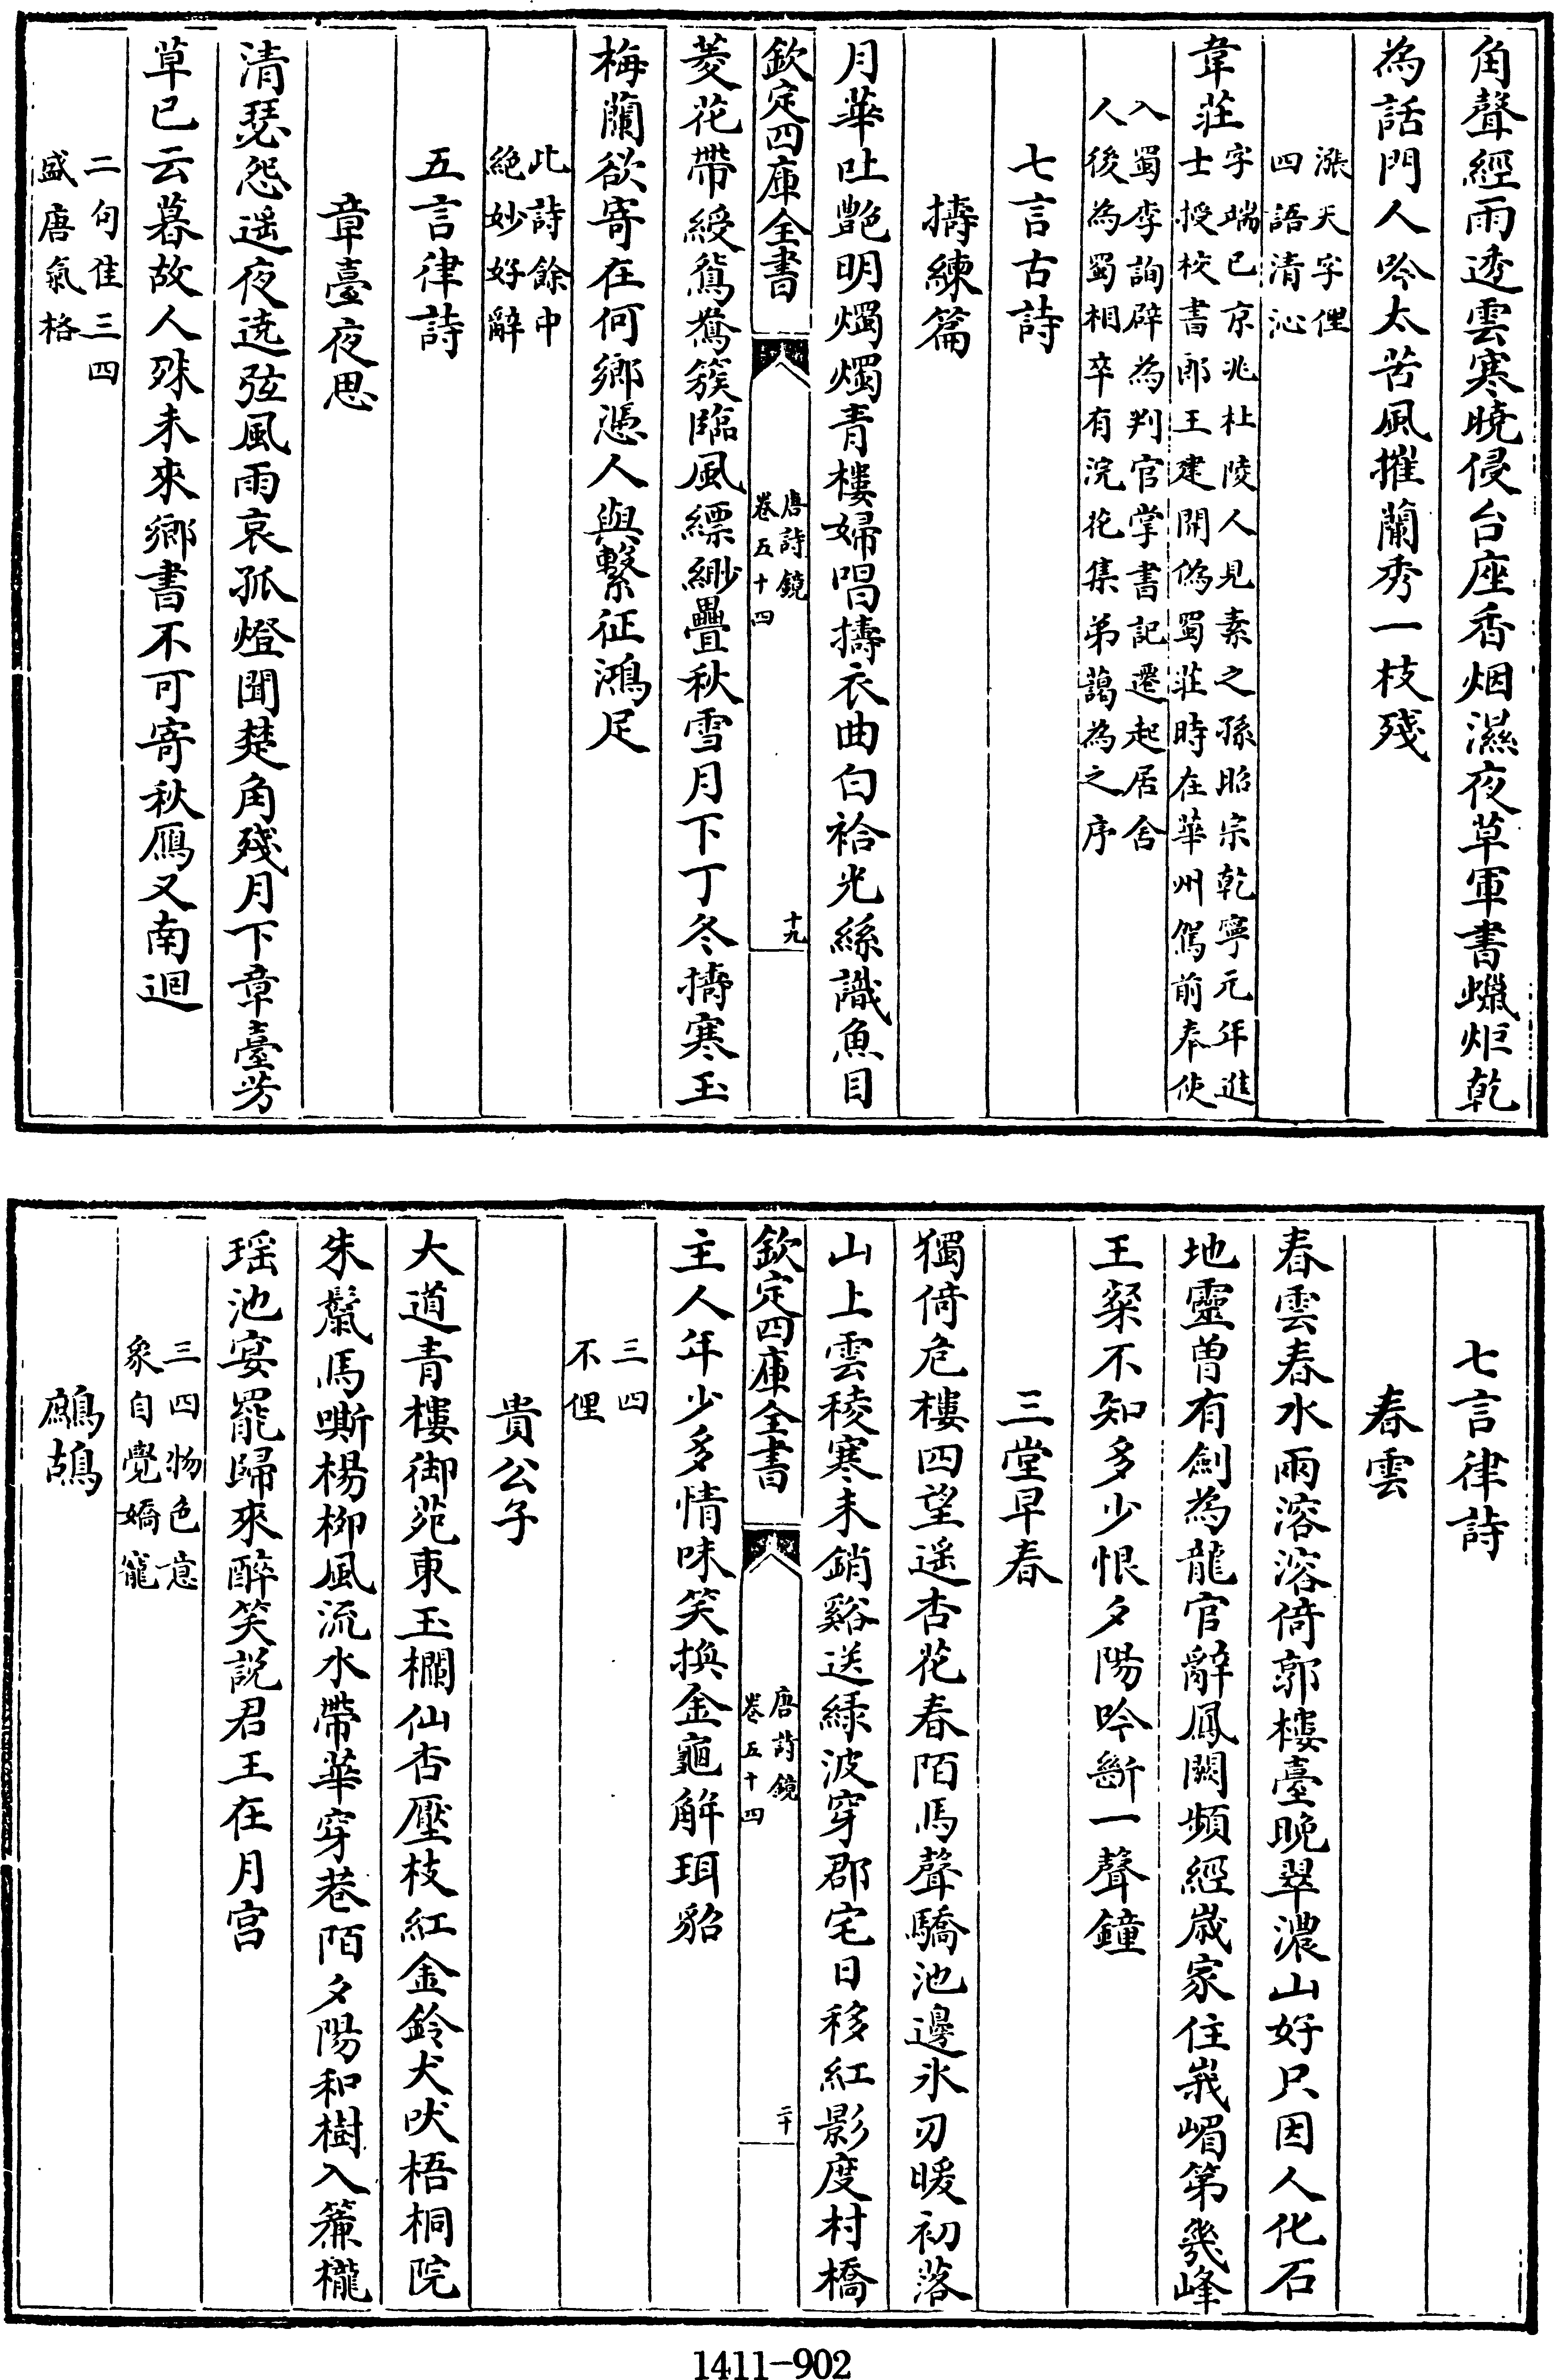 角聲經雨透雲寒曉侵台座香烟濕夜草軍書蠟炬乾
為話門人吟太苦風摧蘭秀一枝殘
漲天字俚
四語清沁
韋莊
字端已京兆杜陵人見素之孫昭宗乾寧元年進
士授校書郎王建開偽蜀莊時在華州駕前奉使
入蜀李詢辟為判官掌書記遷起居舍
人後為蜀相卒有浣花集弟藹為之序
七言古詩
擣練篇
月華吐艶明燭燭青樓婦唱擣衣曲白袷光絲識魚目
欽定四庫全書
唐詩鏡
卷五十四
十九
菱花帶綬鴛鴦簇臨風縹緲疊秋雪月下丁冬擣寒玉
梅蘭欲寄在何鄉憑人與繫征鴻足
此詩餘中
絶妙好辭
五言律詩
章臺夜思
清瑟怨遥夜遶弦風雨哀孤燈聞楚角殘月下章臺芳
草已云暮故人殊未來鄉書不可寄秋鴈又南迴
二句佳三四
盛唐氣格
七言律詩
春雲
春雲春水兩溶溶倚郭樓臺晚翠濃山好只因人化石
地靈曾有劍為龍官辭鳳闕頻經歲家住峩嵋第幾峰
王粲不知多少恨夕陽吟斷一聲鐘
三堂早春
獨倚危樓四望遥杏花春陌馬聲驕池邊氷刃暖初落
山上雲稜寒未銷谿送綠波穿郡宅日移紅影度村橋
欽定四庫全書
唐詩鏡
卷五十四
二十
主人年少多情味笑換金龜解珥貂
三四
不俚
貴公子
大道青樓御苑東玉欄仙杏壓枝紅金鈴犬吠梧桐院
朱鬛馬嘶楊柳風流水帶華穿巷陌夕陽和樹入簾櫳
瑶池宴罷歸來醉笑説君王在月宫
三四物色意
象自覺嬌寵
鷓鴣
1411-902